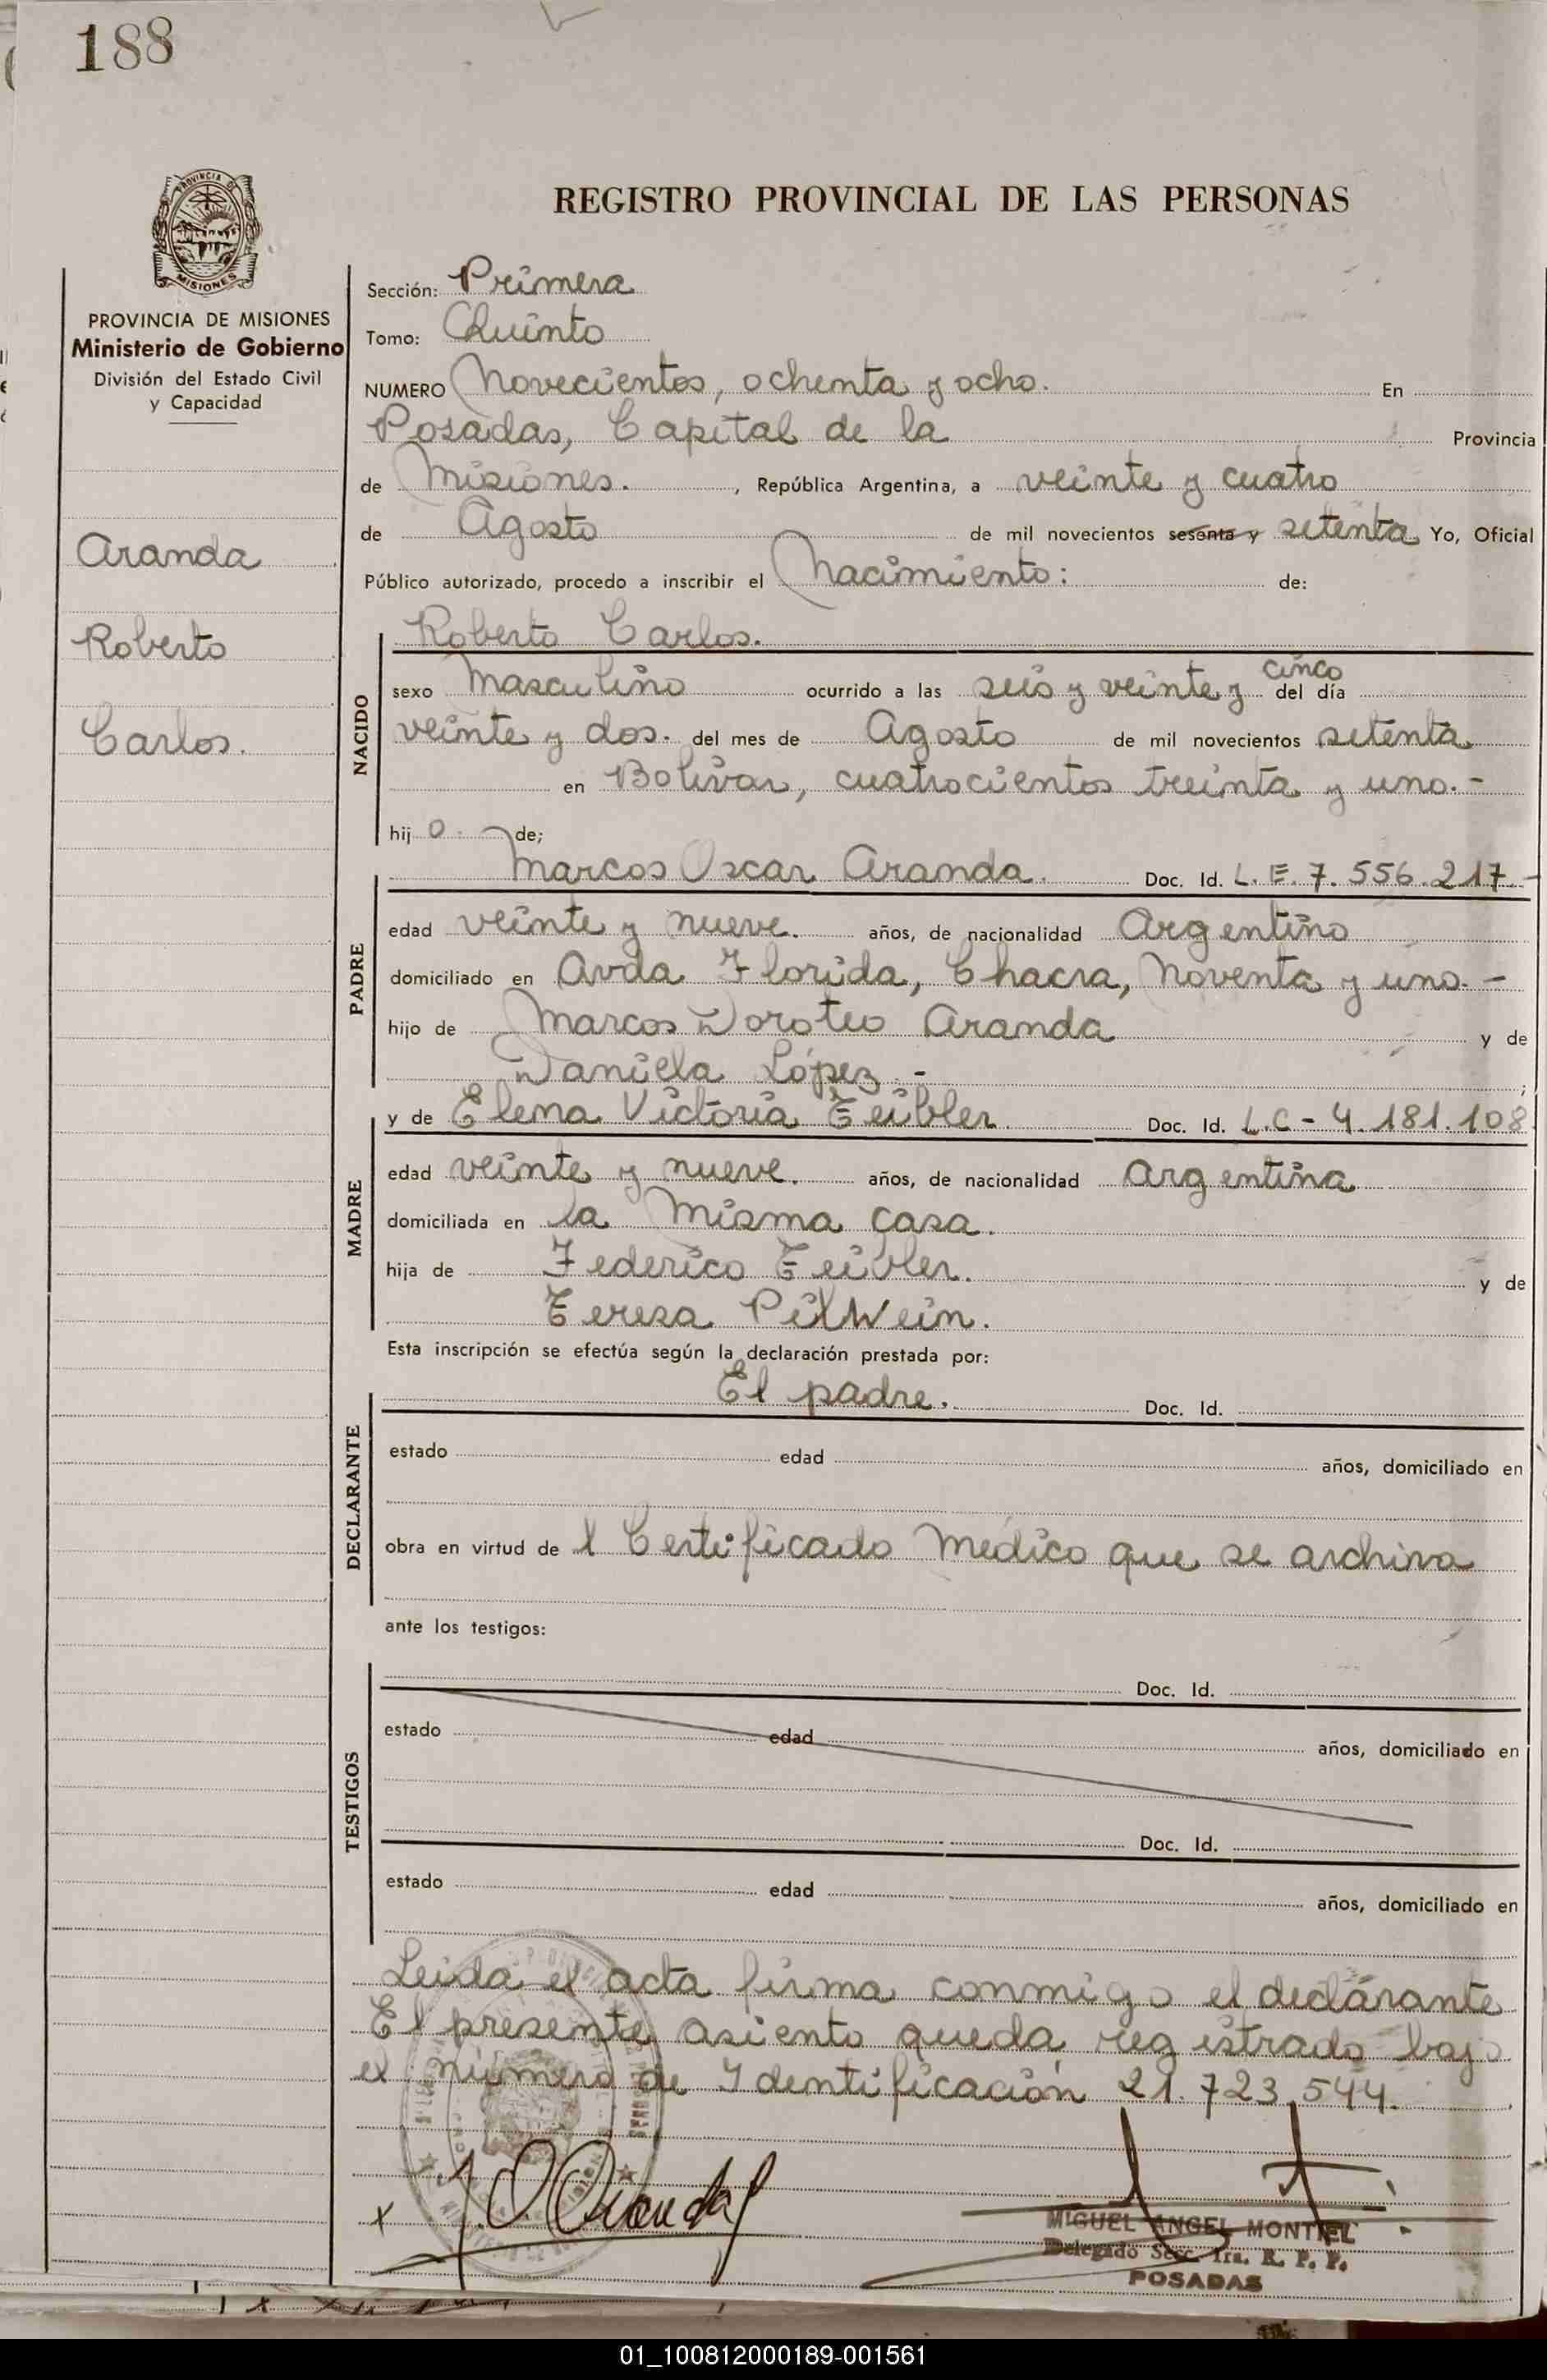 188
PROVINCIA DE
MISIONES
REGISTRO PROVINCIAL DE LAS PERSONAS
PROVINCIA DE MISIONES
Ministerio de Gobierno
División del Estado Civil
y Capacidad
Aranda
Roberto
Carlos.
Sección: Primera
Tomo: Quinto
NUMERO Novecientos, ochenta y ocho. En
Posadas, Capital de la Provincia
de Misiones. , República Argentina, a veinte y cuatro
de Agosto de mil novecientos sesenta y setenta Yo, Oficial
Público autorizado, procedo a inscribir el Nacimiento: de:
NACIDO
Roberto Carlos.
sexo Masculino ocurrido a las seis y veinte y cinco del día
veinte y dos. del mes de Agosto de mil novecientos setenta
en Bolívar, cuatrocientos treinta y uno.-
hij o. de;
PADRE
Marcos Oscar Aranda. Doc. Id. L.E. 7.556.217.-
edad veinte y nueve. años, de nacionalidad Argentino
domiciliado en Avda Florida, Chacra, Noventa y uno.-
hijo de Marcos Doroteo Aranda y de
Daniela López.- ;
MADRE
y de Elena Victoria Teibler. Doc. Id. L.C - 4.181.108
edad veinte y nueve. años, de nacionalidad Argentina
domiciliada en la Misma casa.
hija de Federico Teibler. y de
Teresa PilWein.
Esta inscripción se efectúa según la declaración prestada por:
DECLARANTE
El padre. Doc. Id.
estado edad años, domiciliado en
obra en virtud de l Certificado Médico que se archiva
ante los testigos:
TESTIGOS
Doc. Id.
estado edad años, domiciliado en
Doc. Id.
estado edad años, domiciliado en
Leida el acta firma conmigo el declarante
El presente asiento queda registrado bajo
el número de Identificación 21.723.544.
x
MIGUEL ANGEL MONTIEL
Delegado Secc. 1ra. R. P. P.
POSADAS
01_100812000189-001561